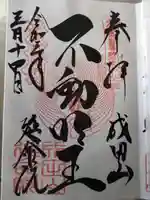 奉拝
成田山
不動明王
令和三年
三月十四日
延命院